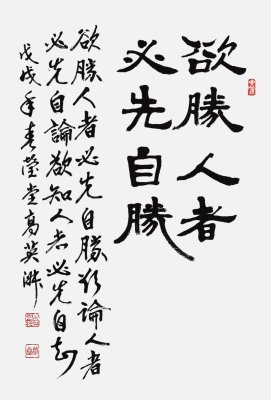 欲勝人者
必先自勝
欲勝人者必先自勝欲論人者
必先自論欲知人者必先自知
戊戌年春瑩堂高英